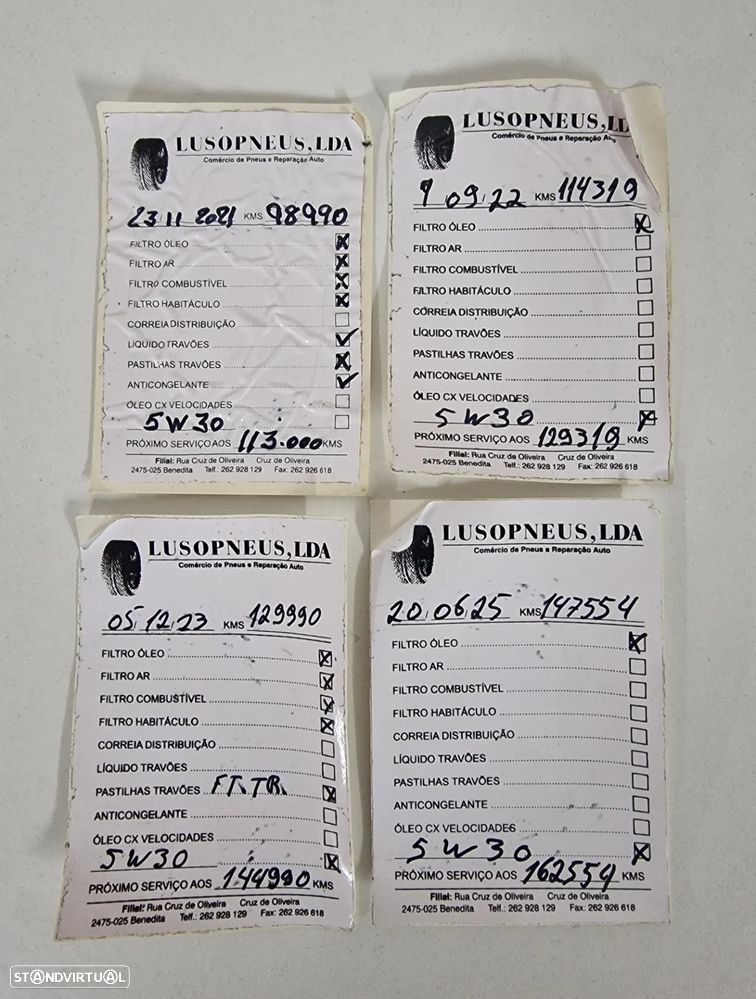 LUSOPNEUS, LDA
Comércio de Pneus e Reparação Auto
23 11 2021 KMS 98990
FILTRO ÓLEO X
FILTRO AR X
FILTRO COMBUSTÍVEL X
FILTRO HABITÁCULO X
CORREIA DISTRIBUIÇÃO
LÍQUIDO TRAVÕES ✓
PASTILHAS TRAVÕES X
ANTICONGELANTE ✓
ÓLEO CX VELOCIDADES
5W30
PRÓXIMO SERVIÇO AOS 113.000 KMS
Filial: Rua Cruz de Oliveira Cruz de Oliveira
2475-025 Benedita Telf.: 262 928 129 Fax: 262 926 618
LUSOPNEUS, LD
Comércio de Pneus e Reparação Au
9 09 22 KMS 114319
FILTRO ÓLEO X
FILTRO AR
FILTRO COMBUSTÍVEL
FILTRO HABITÁCULO
CORREIA DISTRIBUIÇÃO
LÍQUIDO TRAVÕES
PASTILHAS TRAVÕES
ANTICONGELANTE
ÓLEO CX VELOCIDADES
5W30 X
PRÓXIMO SERVIÇO AOS 129319 KMS
Filial: Rua Cruz de Oliveira Cruz de Oliveira
2475-025 Benedita Telf.: 262 928 129 Fax: 262 926 618
LUSOPNEUS, LDA
Comércio de Pneus e Reparação Auto
05 12 23 KMS 129990
FILTRO ÓLEO X
FILTRO AR X
FILTRO COMBUSTÍVEL X
FILTRO HABITÁCULO X
CORREIA DISTRIBUIÇÃO
LÍQUIDO TRAVÕES
PASTILHAS TRAVÕES FT. TR. X
ANTICONGELANTE
ÓLEO CX VELOCIDADES
5W30 X
PRÓXIMO SERVIÇO AOS 144990 KMS
Filial: Rua Cruz de Oliveira Cruz de Oliveira
2475-025 Benedita Telf.: 262 928 129 Fax: 262 926 618
LUSOPNEUS, LDA
Comércio de Pneus e Reparação Auto
20 06 25 KMS 147554
FILTRO ÓLEO X
FILTRO AR
FILTRO COMBUSTÍVEL
FILTRO HABITÁCULO
CORREIA DISTRIBUIÇÃO
LÍQUIDO TRAVÕES
PASTILHAS TRAVÕES
ANTICONGELANTE
ÓLEO CX VELOCIDADES
5W30 X
PRÓXIMO SERVIÇO AOS 162554 KMS
Filial: Rua Cruz de Oliveira Cruz de Oliveira
2475-025 Benedita Telf.: 262 928 129 Fax: 262 926 618
STANDVIRTUAL